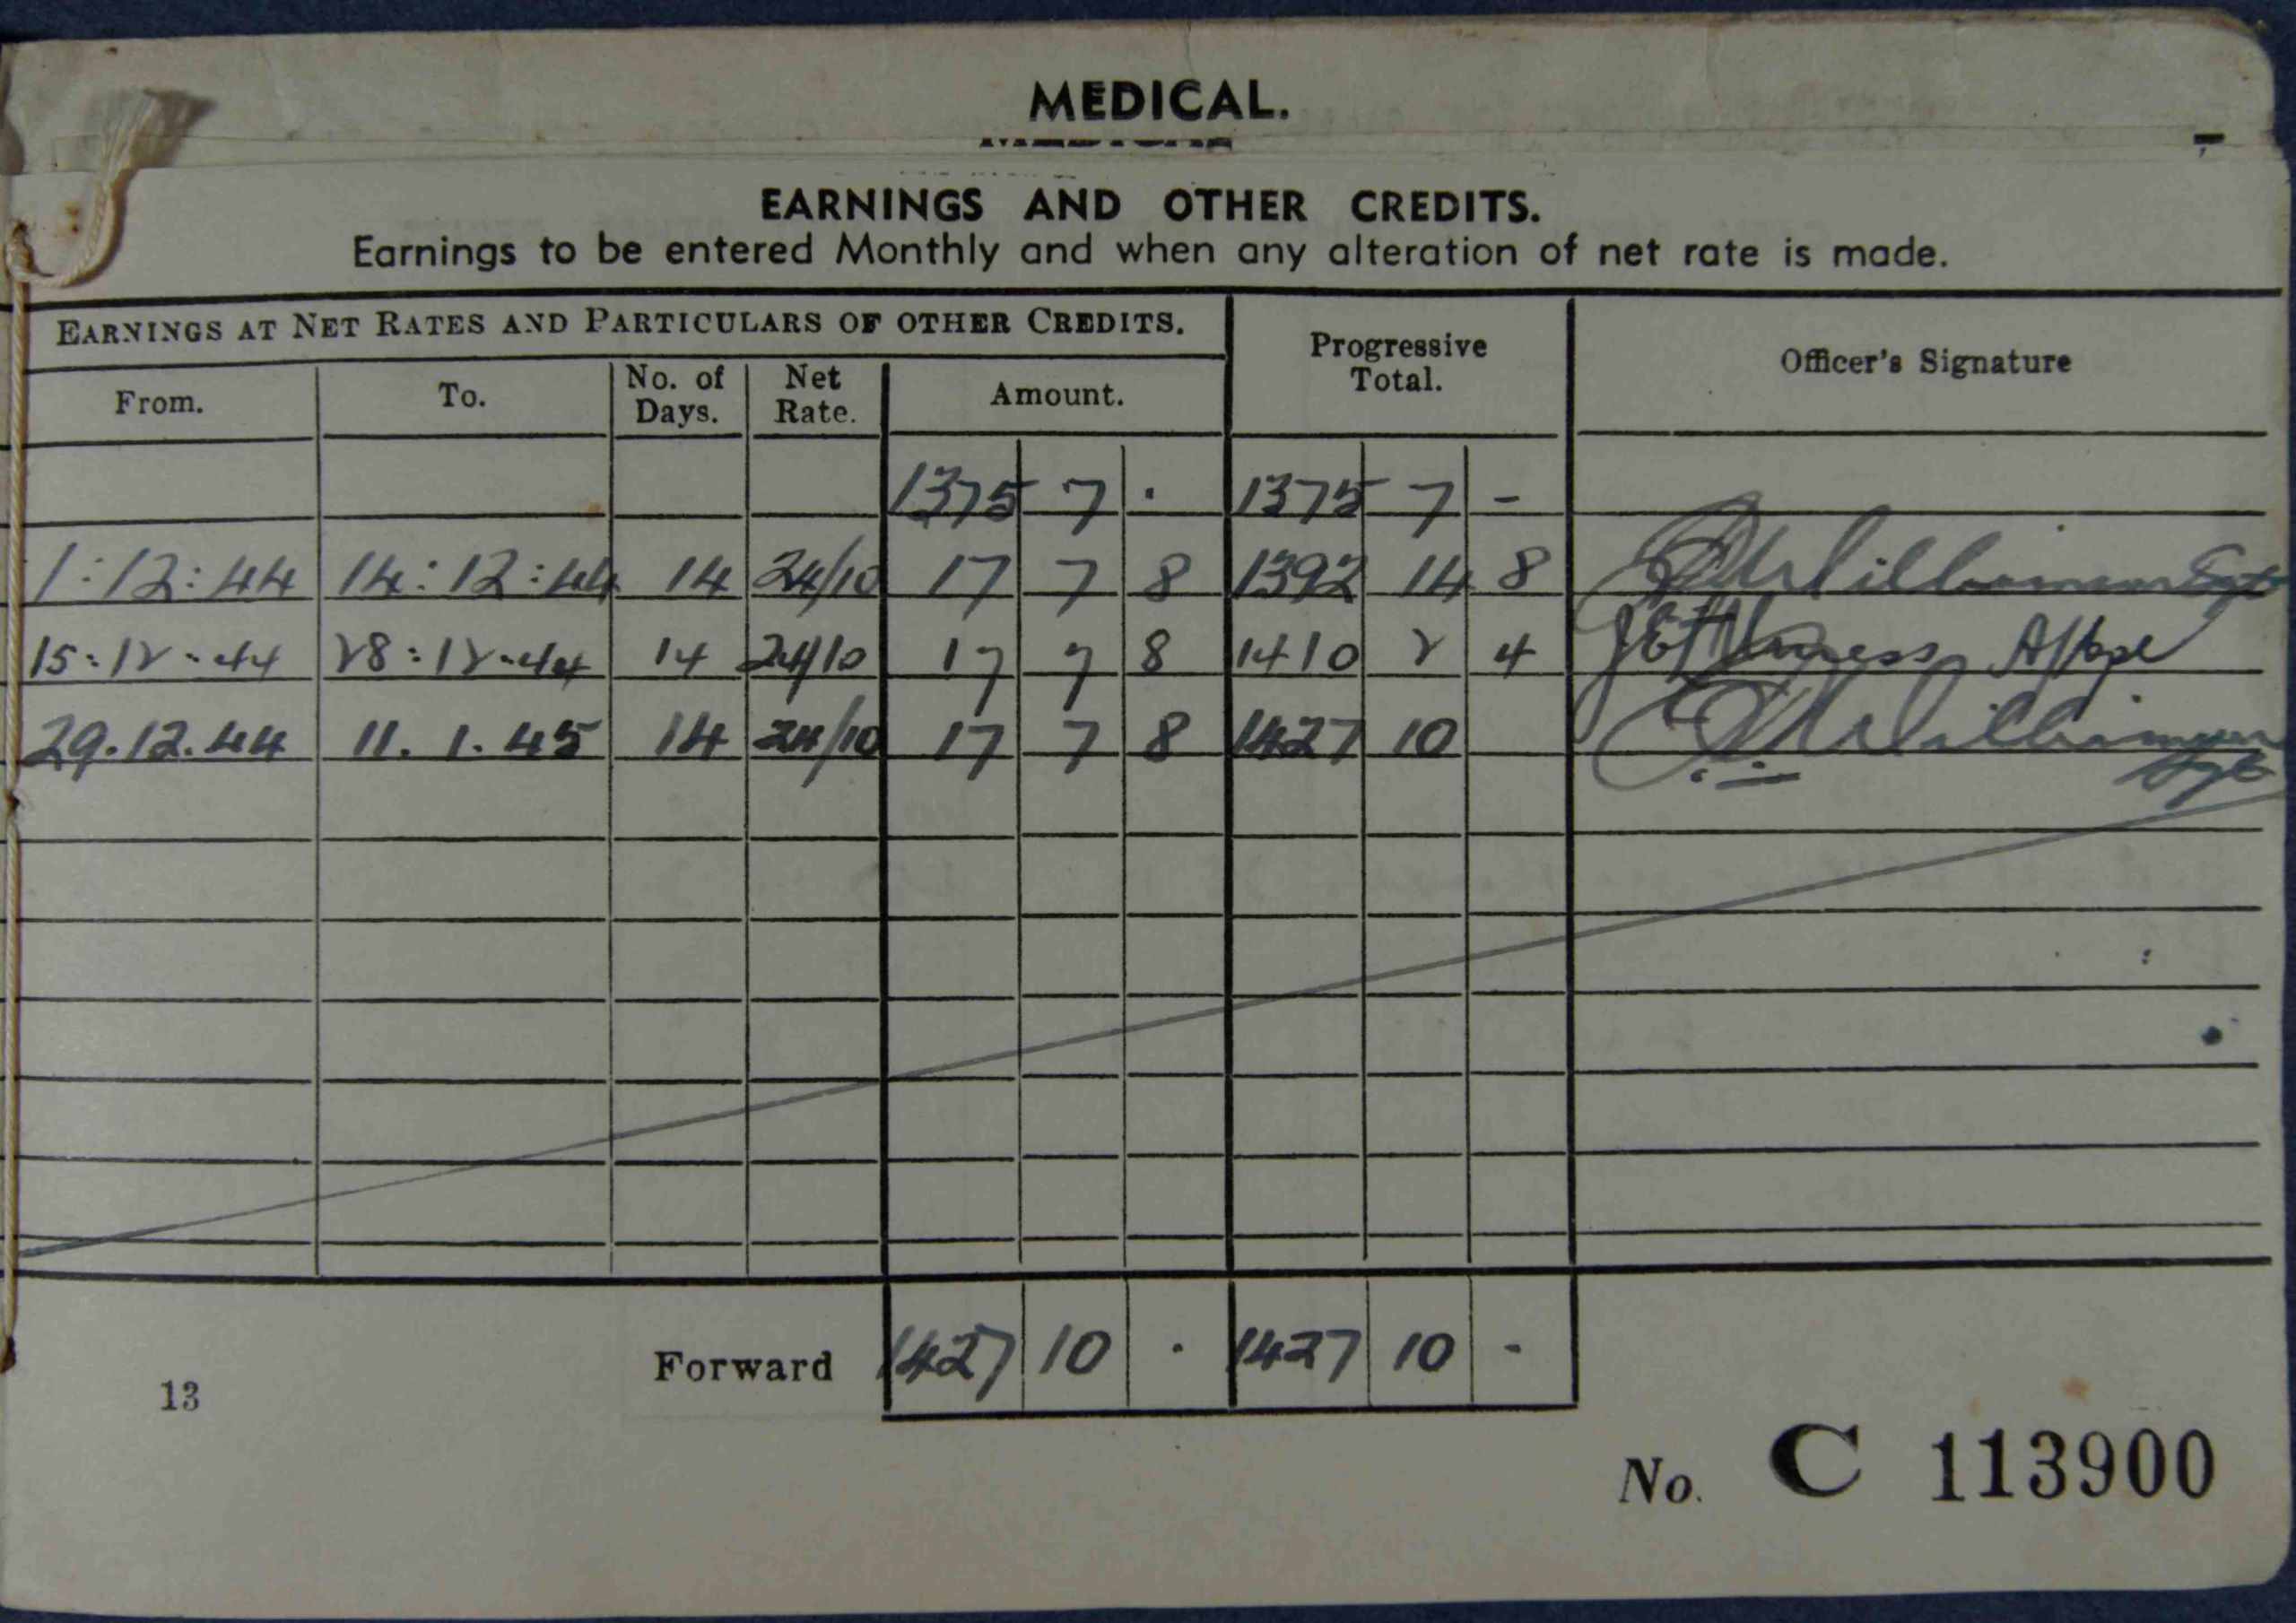 MEDICAL.
EARNINGS AND OTHER CREDITS.
Earnings to be entered Monthly and when any alteration of net rate is made.
EARNINGS AT NET RATES AND PARTICULARS OF OTHER CREDITS. Progressive Total. Officer's Signature
From. To. No. of Days. Net Rate. Amount.
1375 7 . 1375 7 -
1:12:44 14:12:44 14 24/10 17 7 8 1392 14 8 Sgt
15:12.44 28:12.44 14 24/10 17 7 8 1410 2 4
29.12.44 11.1.45 14 24/10 17 7 8 1427 10 Sgt
Forward 1427 10 . 1427 10 -
13
No. C 113900